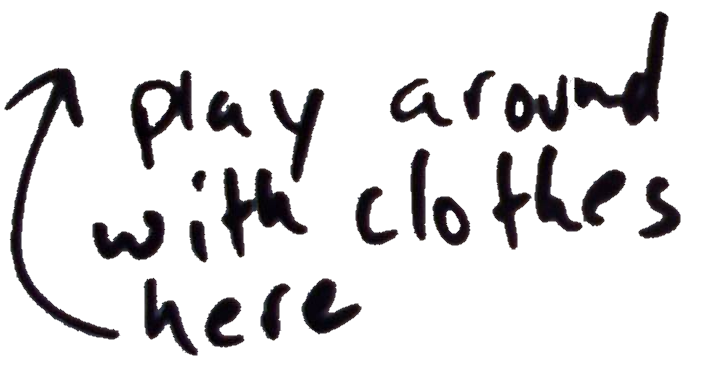 play around
with clothes
here